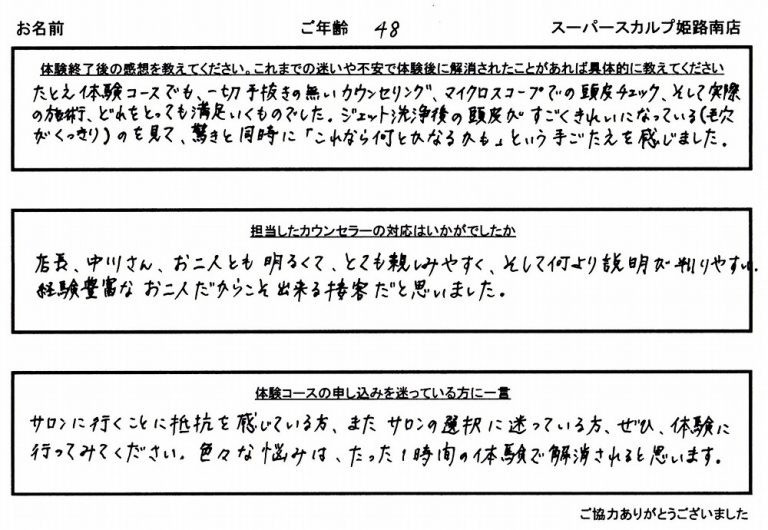 お名前 ご年齢 48 スーパースカルプ姫路南店
体験終了後の感想を教えてください。これまでの迷いや不安で体験後に解消されたことがあれば具体的に教えてください
たとえ体験コースでも、一切手抜きの無いカウンセリング、マイクロスコープでの頭皮チェック、そして実際
の施術、どれをとっても満足いくものでした。ジェット洗浄後の頭皮がすごくきれいになっている(毛穴
がくっきり)のを見て、驚きと同時に「これなら何とかなるかも」という手ごたえを感じました。
担当したカウンセラーの対応はいかがでしたか
店長、中川さん、お二人とも明るくて、とても親しみやすく、そして何より説明が判りやすい。
経験豊富なお二人だからこそ出来る接客だと思いました。
体験コースの申し込みを迷っている方に一言
サロンに行くことに抵抗を感じている方、またサロンの選択に迷っている方、ぜひ、体験に
行ってみてください。色々な悩みは、たった1時間の体験で解消されると思います。
ご協力ありがとうございました